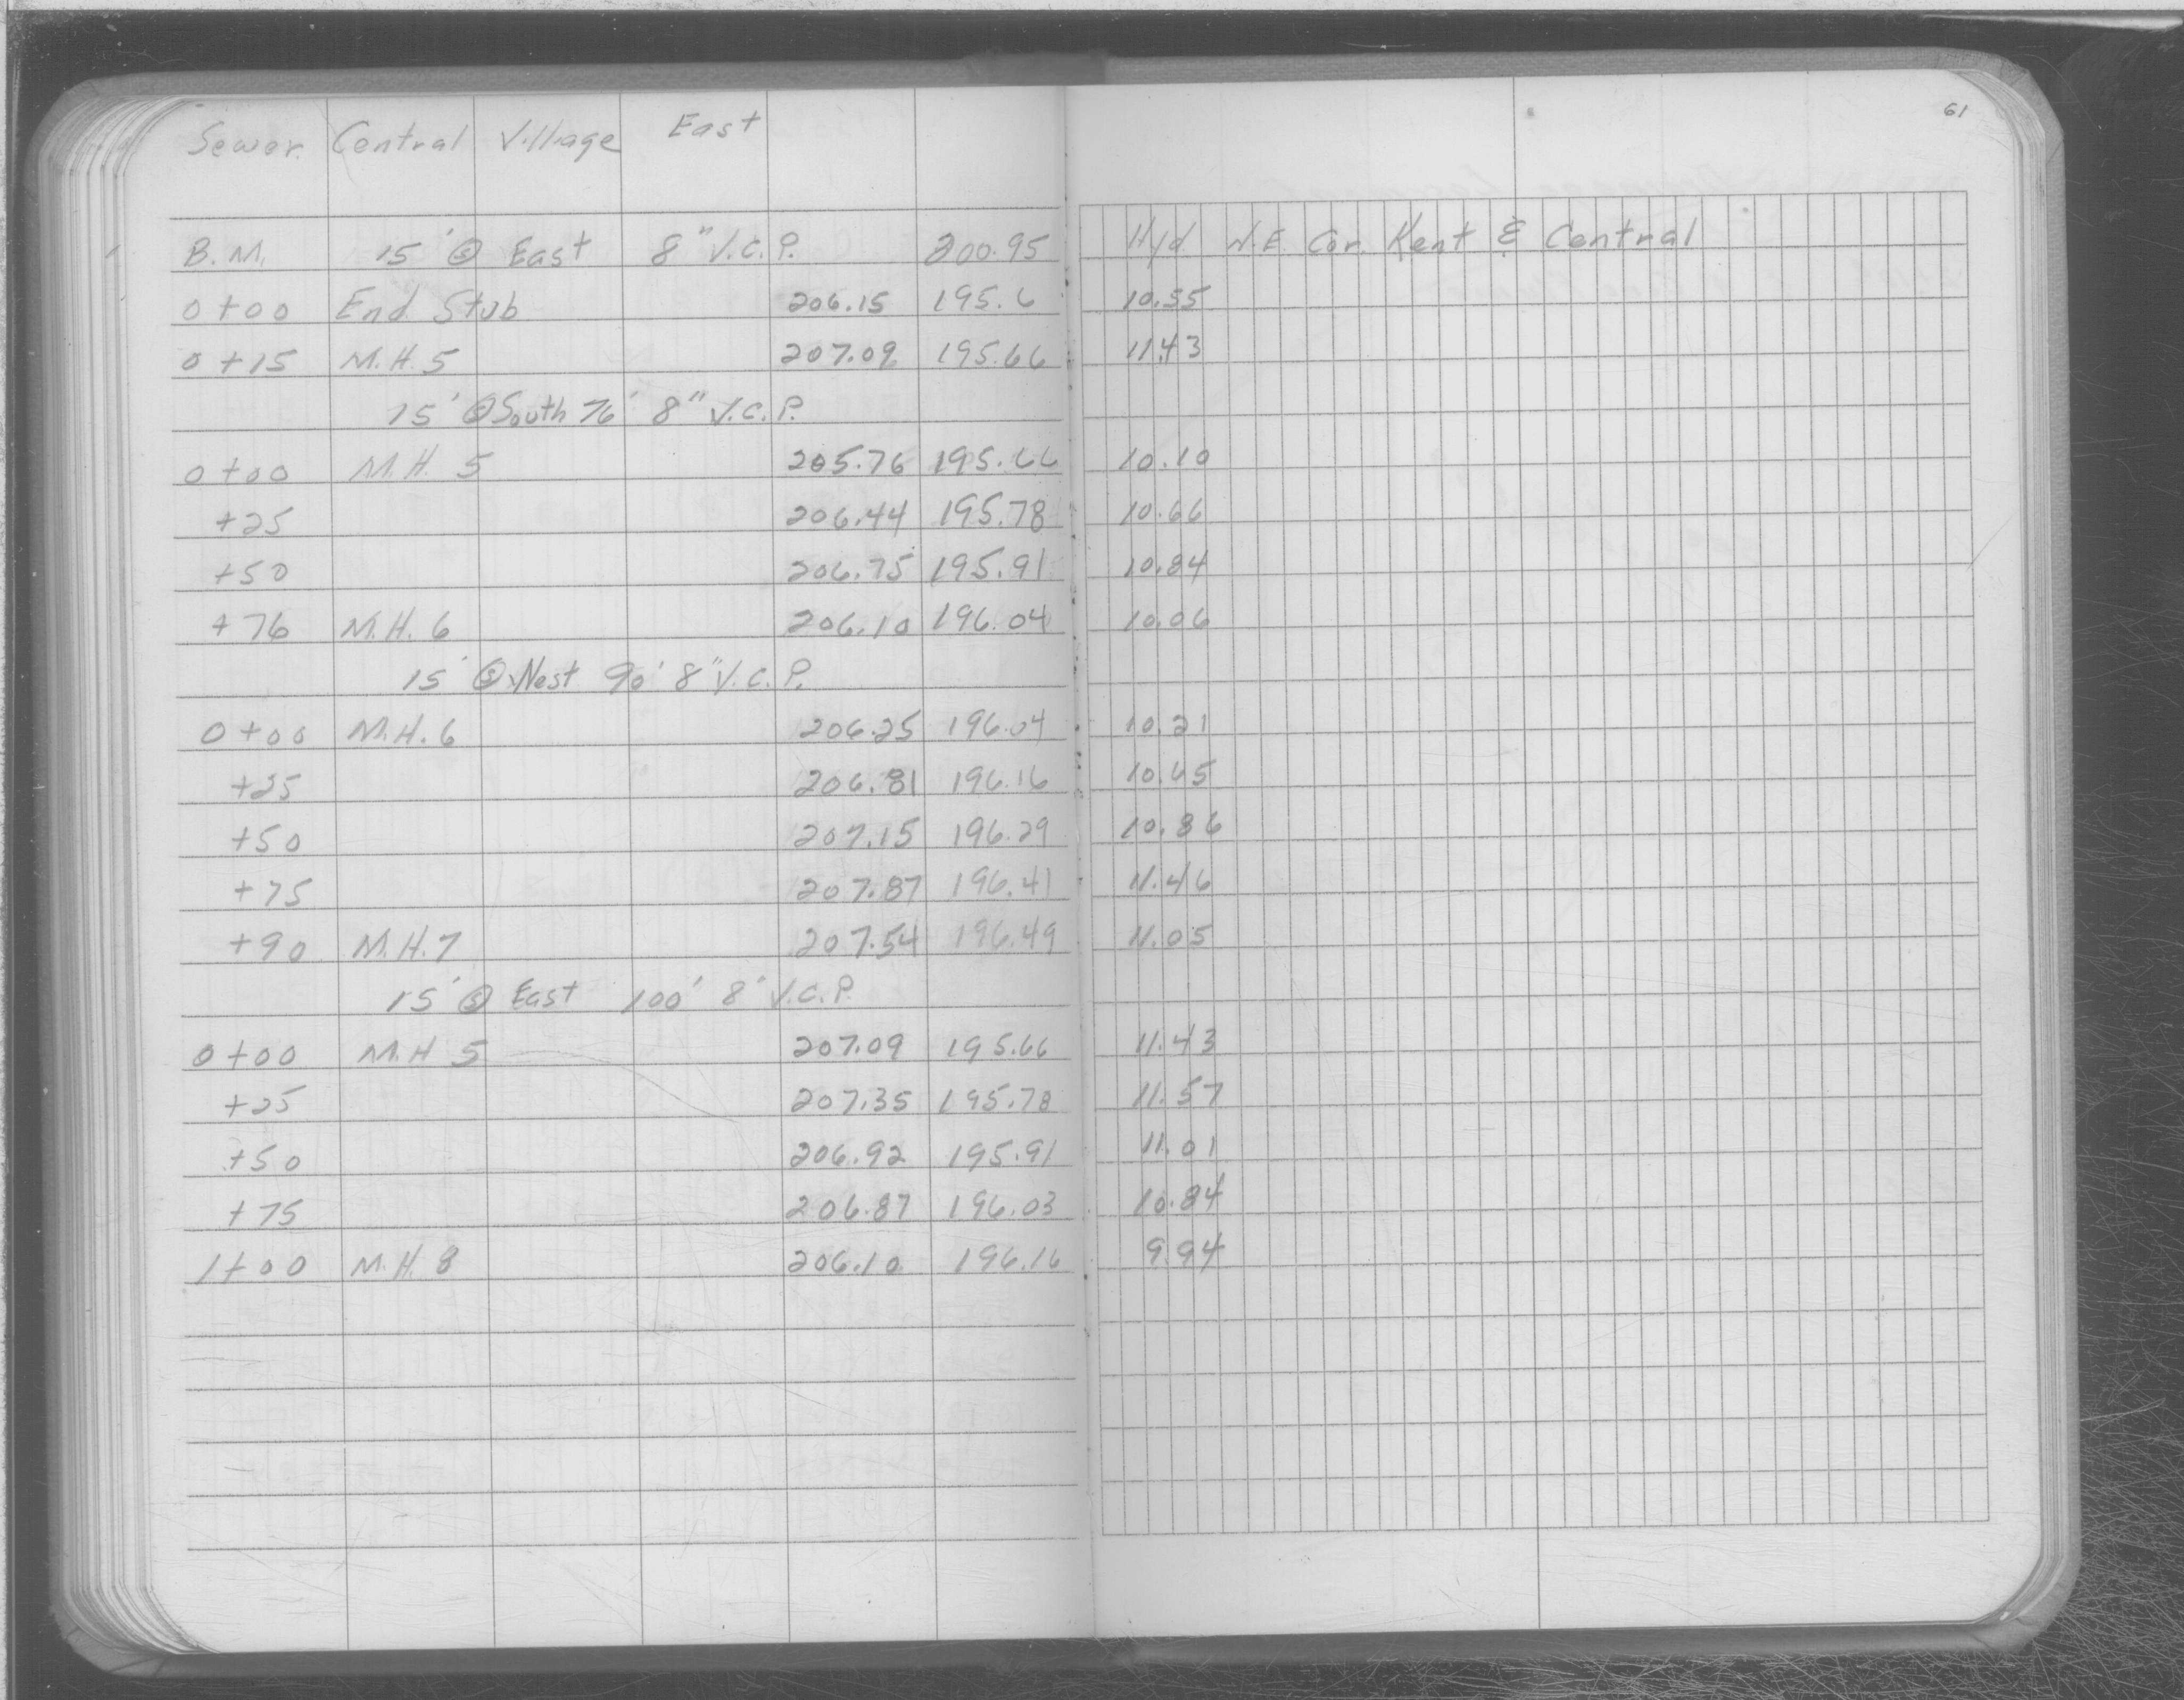 61
Sewer. Central Village East
B.M. 15' Ⓢ East 8" V.C.P. 200.95 Hyd. N.E. Cor. Kent & Central
0+00 End Stub 206.15 195.6 10.55
0+15 M.H. 5 207.09 195.66 11.43
15' Ⓢ South 76' 8" V.C.P.
0+00 M.H. 5 205.76 195.66 10.10
+25 206.44 195.78 10.66
+50 206.75 195.91 10.84
+76 M.H. 6 206.10 196.04 10.06
15' Ⓢ West 90' 8" V.C.P.
0+00 M.H. 6 206.25 196.04 10.21
+25 206.81 196.16 10.65
+50 207.15 196.29 10.86
+75 207.87 196.41 11.46
+90 M.H. 7 207.54 196.49 11.05
15' Ⓢ East 100' 8" V.C.P.
0+00 M.H 5 207.09 195.66 11.43
+25 207.35 195.78 11.57
+50 206.92 195.91 11.01
+75 206.87 196.03 10.84
1+00 M.H. 8 206.10 196.16 9.94